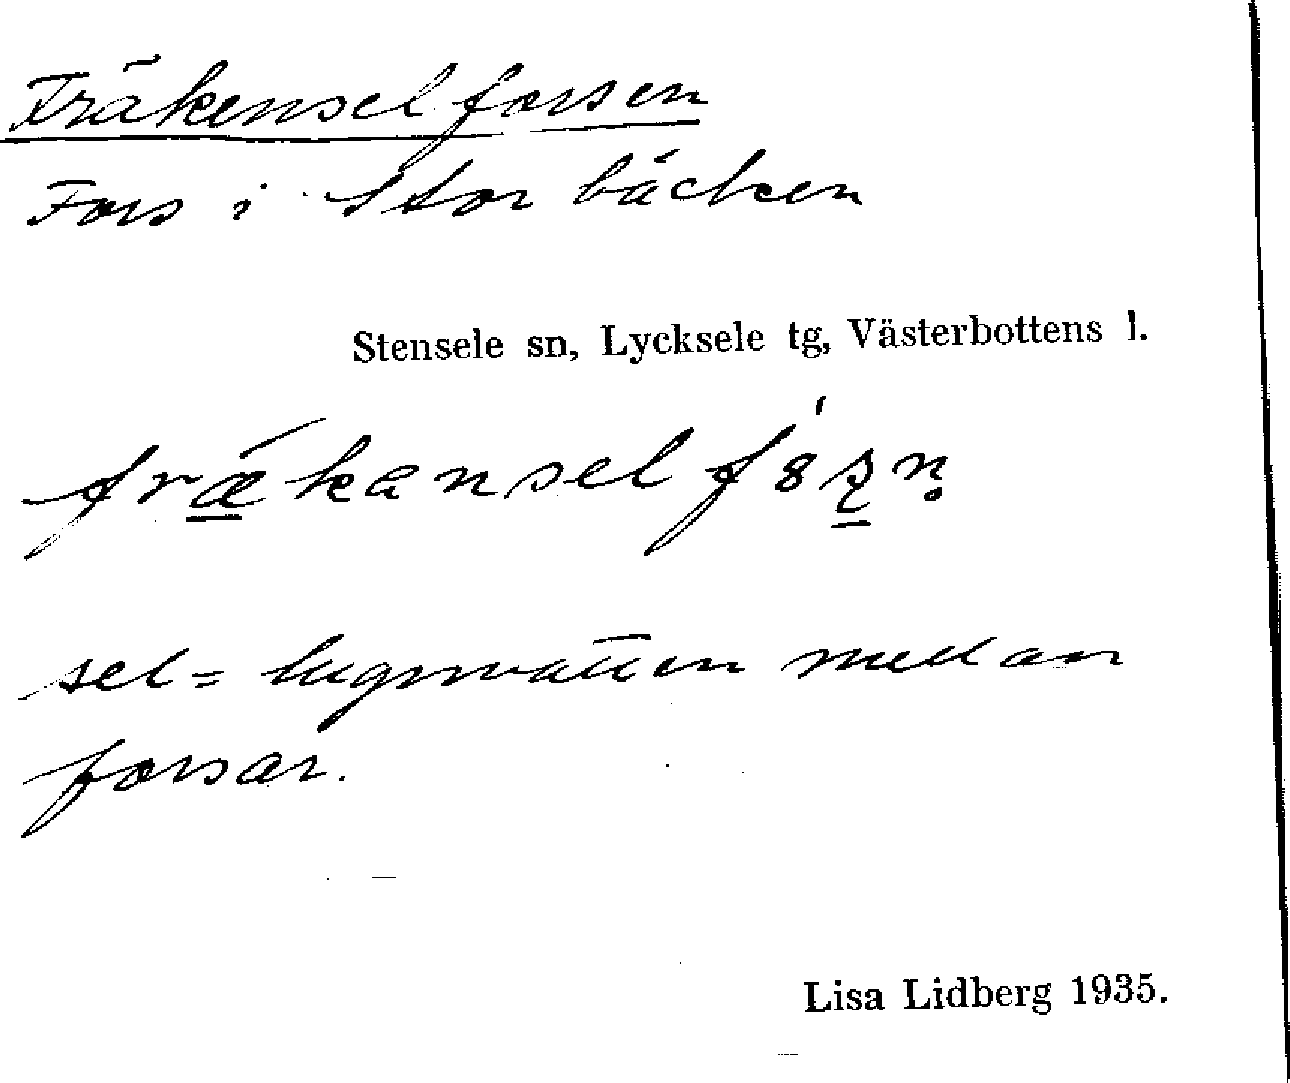 Fräkenselforsen
Fors i Storbäcken
Stensele sn, Lycksele tg, Västerbottens l.
sel = lugnvatten mellan
forsar.
Lisa Lidberg 1935.